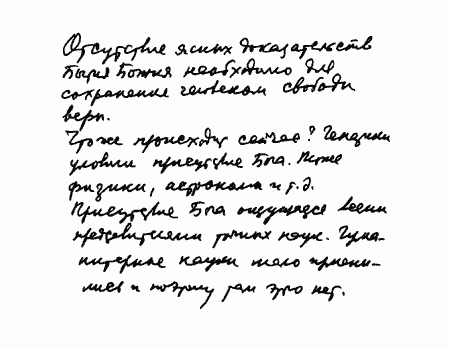 Отсутствие ясных доказательств
Бытия Божия необходимо для
сохранения человеком свободы
веры.
Что же происходит сейчас? Генетики
уловили присутствие Бога. Также
физики, астрономы и т.д.
Присутствие Бога ощущается всеми
представителями точных наук. Гума-
нитарные науки мало
и поэтому там это нет.